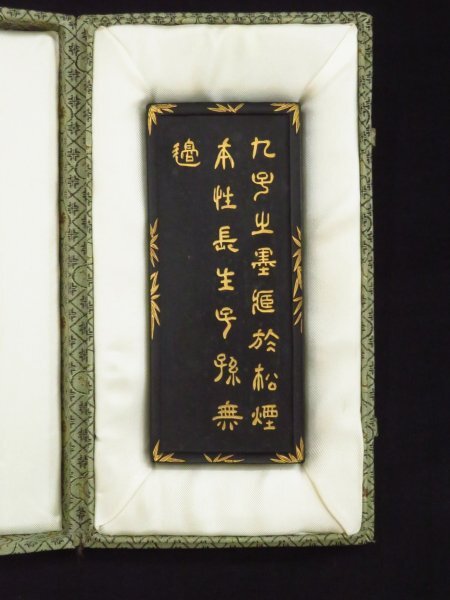 九子之墨藏於松煙
本性長生子孫無
邊